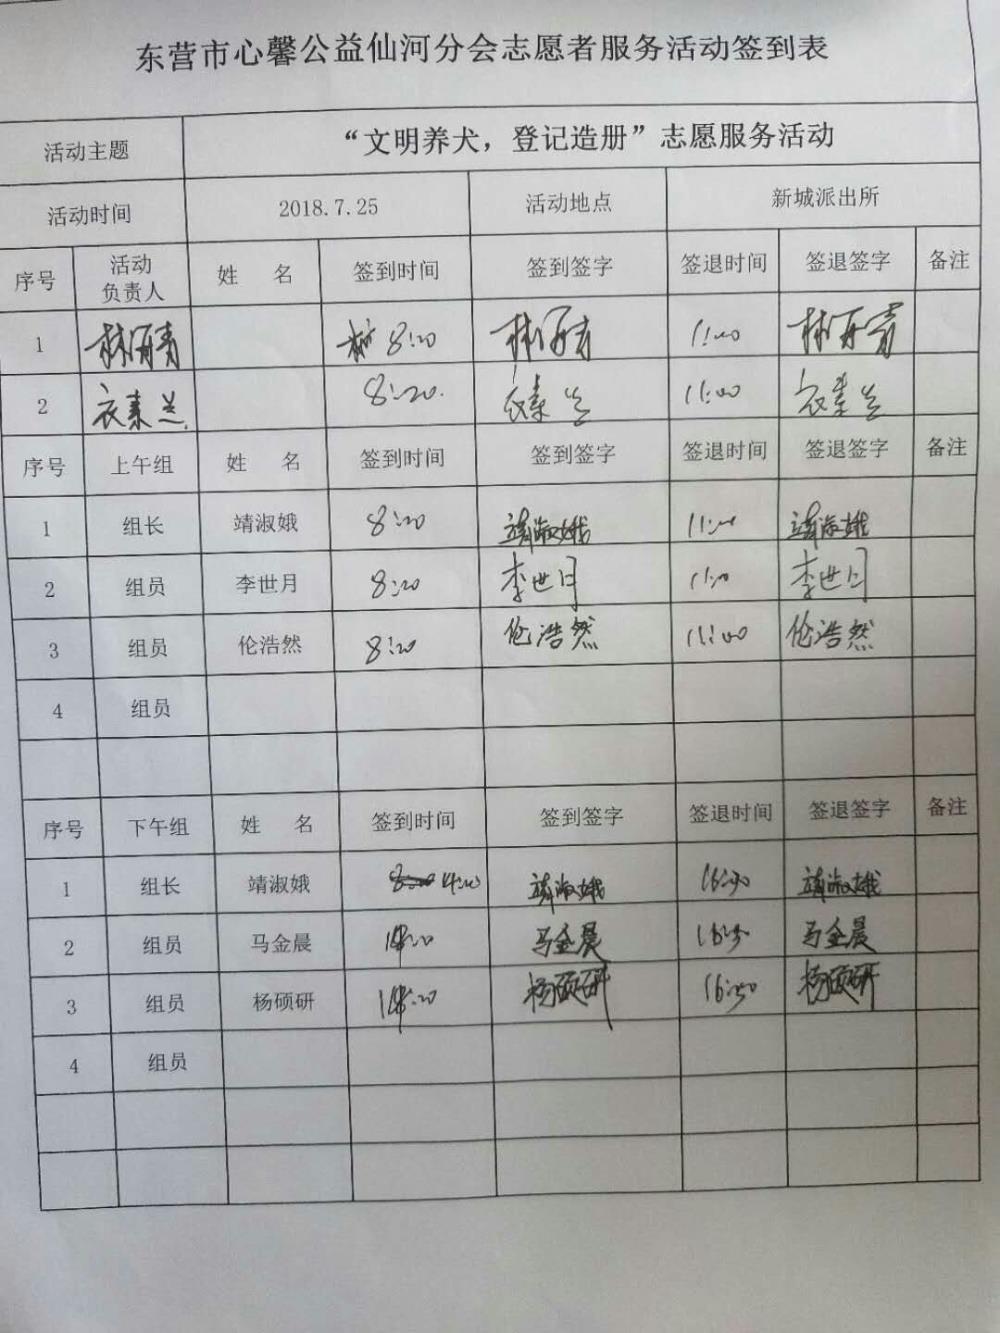 东营市心馨公益仙河分会志愿者服务活动签到表
活动主题 “文明养犬，登记造册”志愿服务活动
活动时间 2018.7.25 活动地点 新城派出所
序号 活动负责人 姓 名 签到时间 签到签字 签退时间 签退签字 备注
1 林丽青 8:20 林丽青 11:00 林丽青
2 衣素兰 8:20 衣素兰 11:00 衣素兰
序号 上午组 姓 名 签到时间 签到签字 签退时间 签退签字 备注
1 组长 靖淑娥 8:20 靖淑娥 11:00 靖淑娥
2 组员 李世月 8:20 李世月 11:00 李世月
3 组员 伦浩然 8:20 伦浩然 11:00 伦浩然
4 组员
序号 下午组 姓 名 签到时间 签到签字 签退时间 签退签字 备注
1 组长 靖淑娥 靖淑娥 16:30 靖淑娥
2 组员 马金晨 马金晨 16:30 马金晨
3 组员 杨硕研 杨硕研 16:30 杨硕研
4 组员